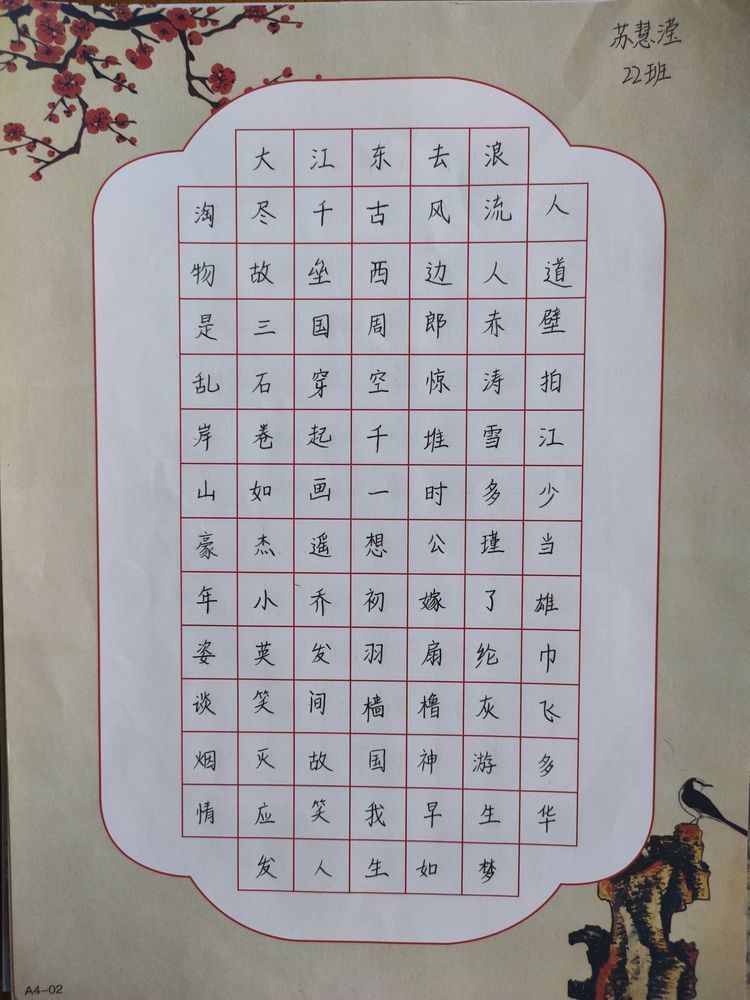 苏慧滢
22班
大江东去浪
淘尽千古风流人
物故垒西边人道
是三国周郎赤壁
乱石穿空惊涛拍
岸卷起千堆雪江
山如画一时多少
豪杰遥想公瑾当
年小乔初嫁了雄
姿英发羽扇纶巾
谈笑间樯橹灰飞
烟灭故国神游多
情应笑我早生华
发人生如梦
A4-02